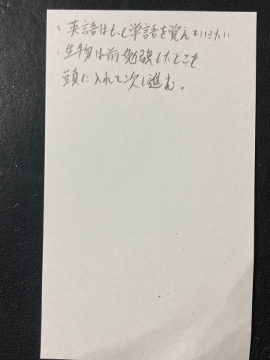 、英語はもっと単語を覚えていきたい
、生物は前勉強したとこを
頭に入れて次に進む。